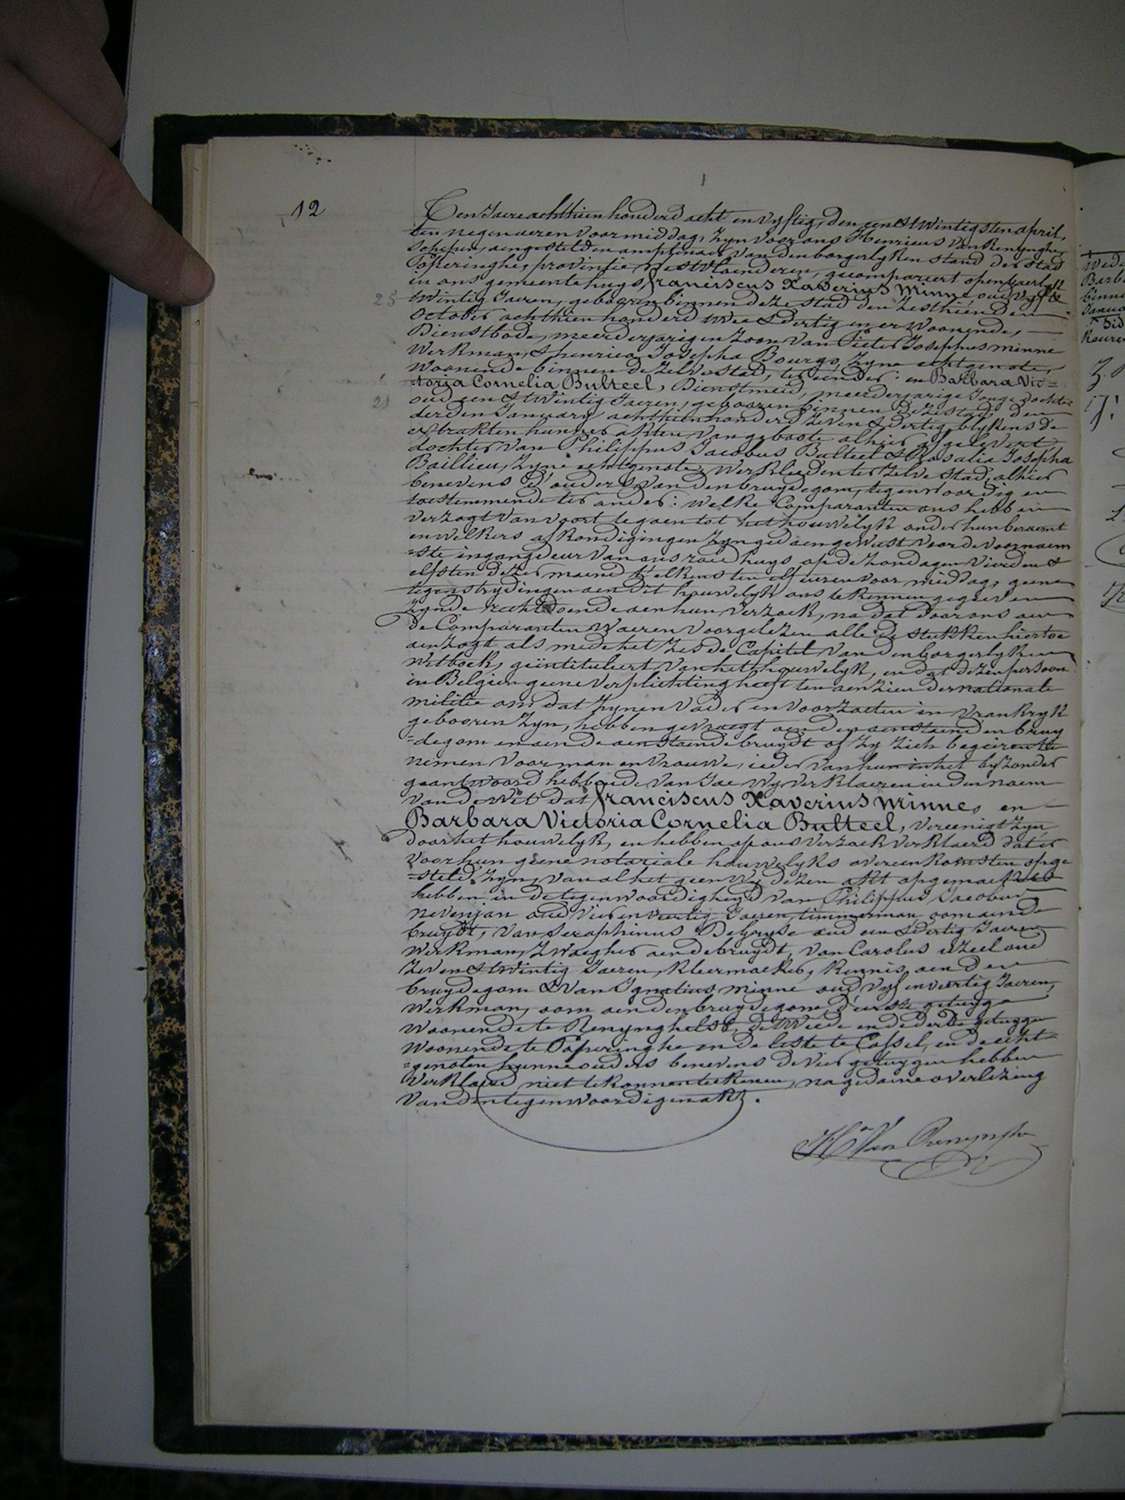 12
Ten Jaere achthien honderd acht en vyftig, den een & twintigsten april,
ten negen uren voormiddag, zyn voor ons Henricus Van Renynghe,
Schepen, aengestelden amptenaer van den borgerlyken stand der stad
Poperinghe, provintie Westvlaenderen, gecompareert openbaerlyk
in ons gemeentehuys, Franciscus Xaverius Minne oud vyf &
25
twintig Jaeren, gebooren binnen deze stad den zesthienden
October achthien honderd twee & dertig en er woonende,
Dienstbode, meerderjarigen zoon van Pieter Josephus Minne
Werkman, & Henrica Josepha Bourgo, zyne echtgenote,
woonende binnen dezelve stad, ter eender: en Barbara Vic-
-toria Cornelia Bulteel, Dienstmeid, meerderjarige Jonge dochter
21
oud een & twintig Jaeren, gebooren binnen deze stad den
derden January achthien honderd zeven & dertig, blykens de
extrakten hunner akten van geboote alhier afgelevert
dochter van Philippus Jacobus Bulteel & Rosalia Josepha
Baillieu, zyne echtgenote, werklieden ter zelve stad, alhier
benevens d'ouders van den bruydegom, tegenwoordig en
toestemmende ter ander: welke Comparanten ons hebben
verzogt van voort te gaen tot het houwelyk onder hun beraemt
en welkers afkondigingen zyn gedaen geweest voor de voornaem
-ste ingangdeur van ons raedhuys, op de zondagen vierden &
elfsten dezer maend t'elkens ten elf uren voor middag, geene
tegenstrydingen aen dit houwelyk ons te kennen gegeven
zynde recht doende aen hun verzoek, na dat door ons aen
de Comparanten waeren voorgelezen alle de stukken hiertoe
aenzogt als mede het zesde Capittel van den borgerlyken
Wetboek, geïntituleert van het houwelyk, en dat dezen persoon
in Belgien geene verplichting heeft ten aenzien der nationale
militie om dat zynen vader en voorzaeten in Vrankryk
gebooren zyn, hebben gevraegt aen den aenstaenden bruy
-degom en aen de aenstaende bruydt of zy zich begeiren te
nemen voor man en vrouwe, ieder van hun in het byzonder
geantwoord hebbende van Jae, wy verklaeren in den naem
van de wet dat Franciscus Xaverius Minne, en
Barbara Victoria Cornelia Bulteel, vereenigt zyn
door het houwelyk, en hebben op ons verzoek verklaerd dat er
voor hun geene notariale houwelyks overeenkomsten opge
-steld zyn, van al het geen wy dezen akt opgemaekt
hebben in de tegenwoordigheyd van Philippus Jacobus
Nevenjan oud vier en veertig Jaeren, timmerman oom aen de
bruydt, van Seraphinus Dehryse oud een & dertig Jaeren
Werkman, zwaegher aen de bruydt, van Carolus oud
zeven & twintig Jaeren, kleermaeker, kennis aen den
bruydegom & van Ignatius Minne oud vyf en veertig Jaeren,
Werkman, oom aen den bruydegom d'eerste getuyge
woonende te Renynghelst, de tweede en de derde getuygen
woonende te Poperinghe en de leste te Cassel, en de echt-
-genoten, hunne ouders benevens de vier getuygen hebben
verklaerd niet te konnen teekenen, na gedaene overlezing
van den tegenwoordigen akt.
Hri Van Renynghe